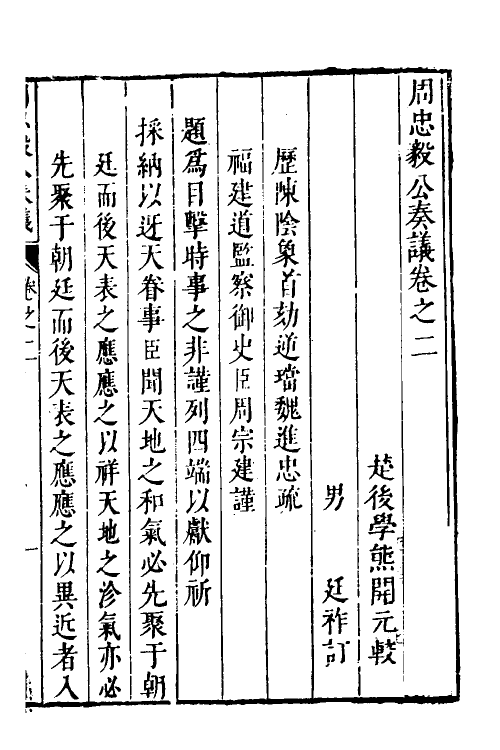 周忠毅公奏議卷之二
楚後學熊開元較
男 廷祚訂
歷陳陰象首劾逆璫魏進忠疏
福建道監察御史臣周宗建謹
題為目擊時事之非謹列四端以獻仰祈
採納以迓天眷事臣聞天地之和氣必先聚于朝
廷而後天表之應應之以祥天地之沴氣亦必
先聚于朝廷而後天表之應應之以異近者入
卷之二
一